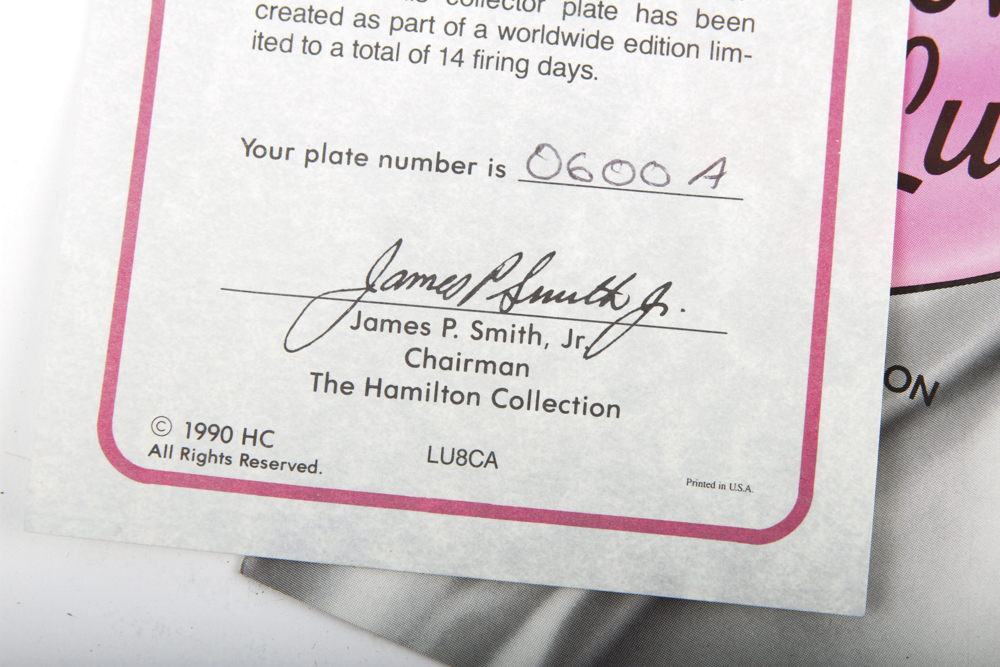 collector plate has been
created as part of a worldwide edition lim-
ited to a total of 14 firing days.
Your plate number is 0600 A
James P. Smith Jr.
James P. Smith, Jr.
Chairman
The Hamilton Collection
© 1990 HC
All Rights Reserved.
LU8CA
Printed in U.S.A.
ON